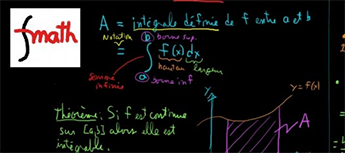 fmath
A = intégrale définie de f entre a et b
Notation
= ∫ f(x) dx
b borne sup
hauteur largeur
Somme infinie
a borne inf
Théorème: Si f est continue
sur [a,b] alors elle est
intégrable.
y
y = f(x)
A